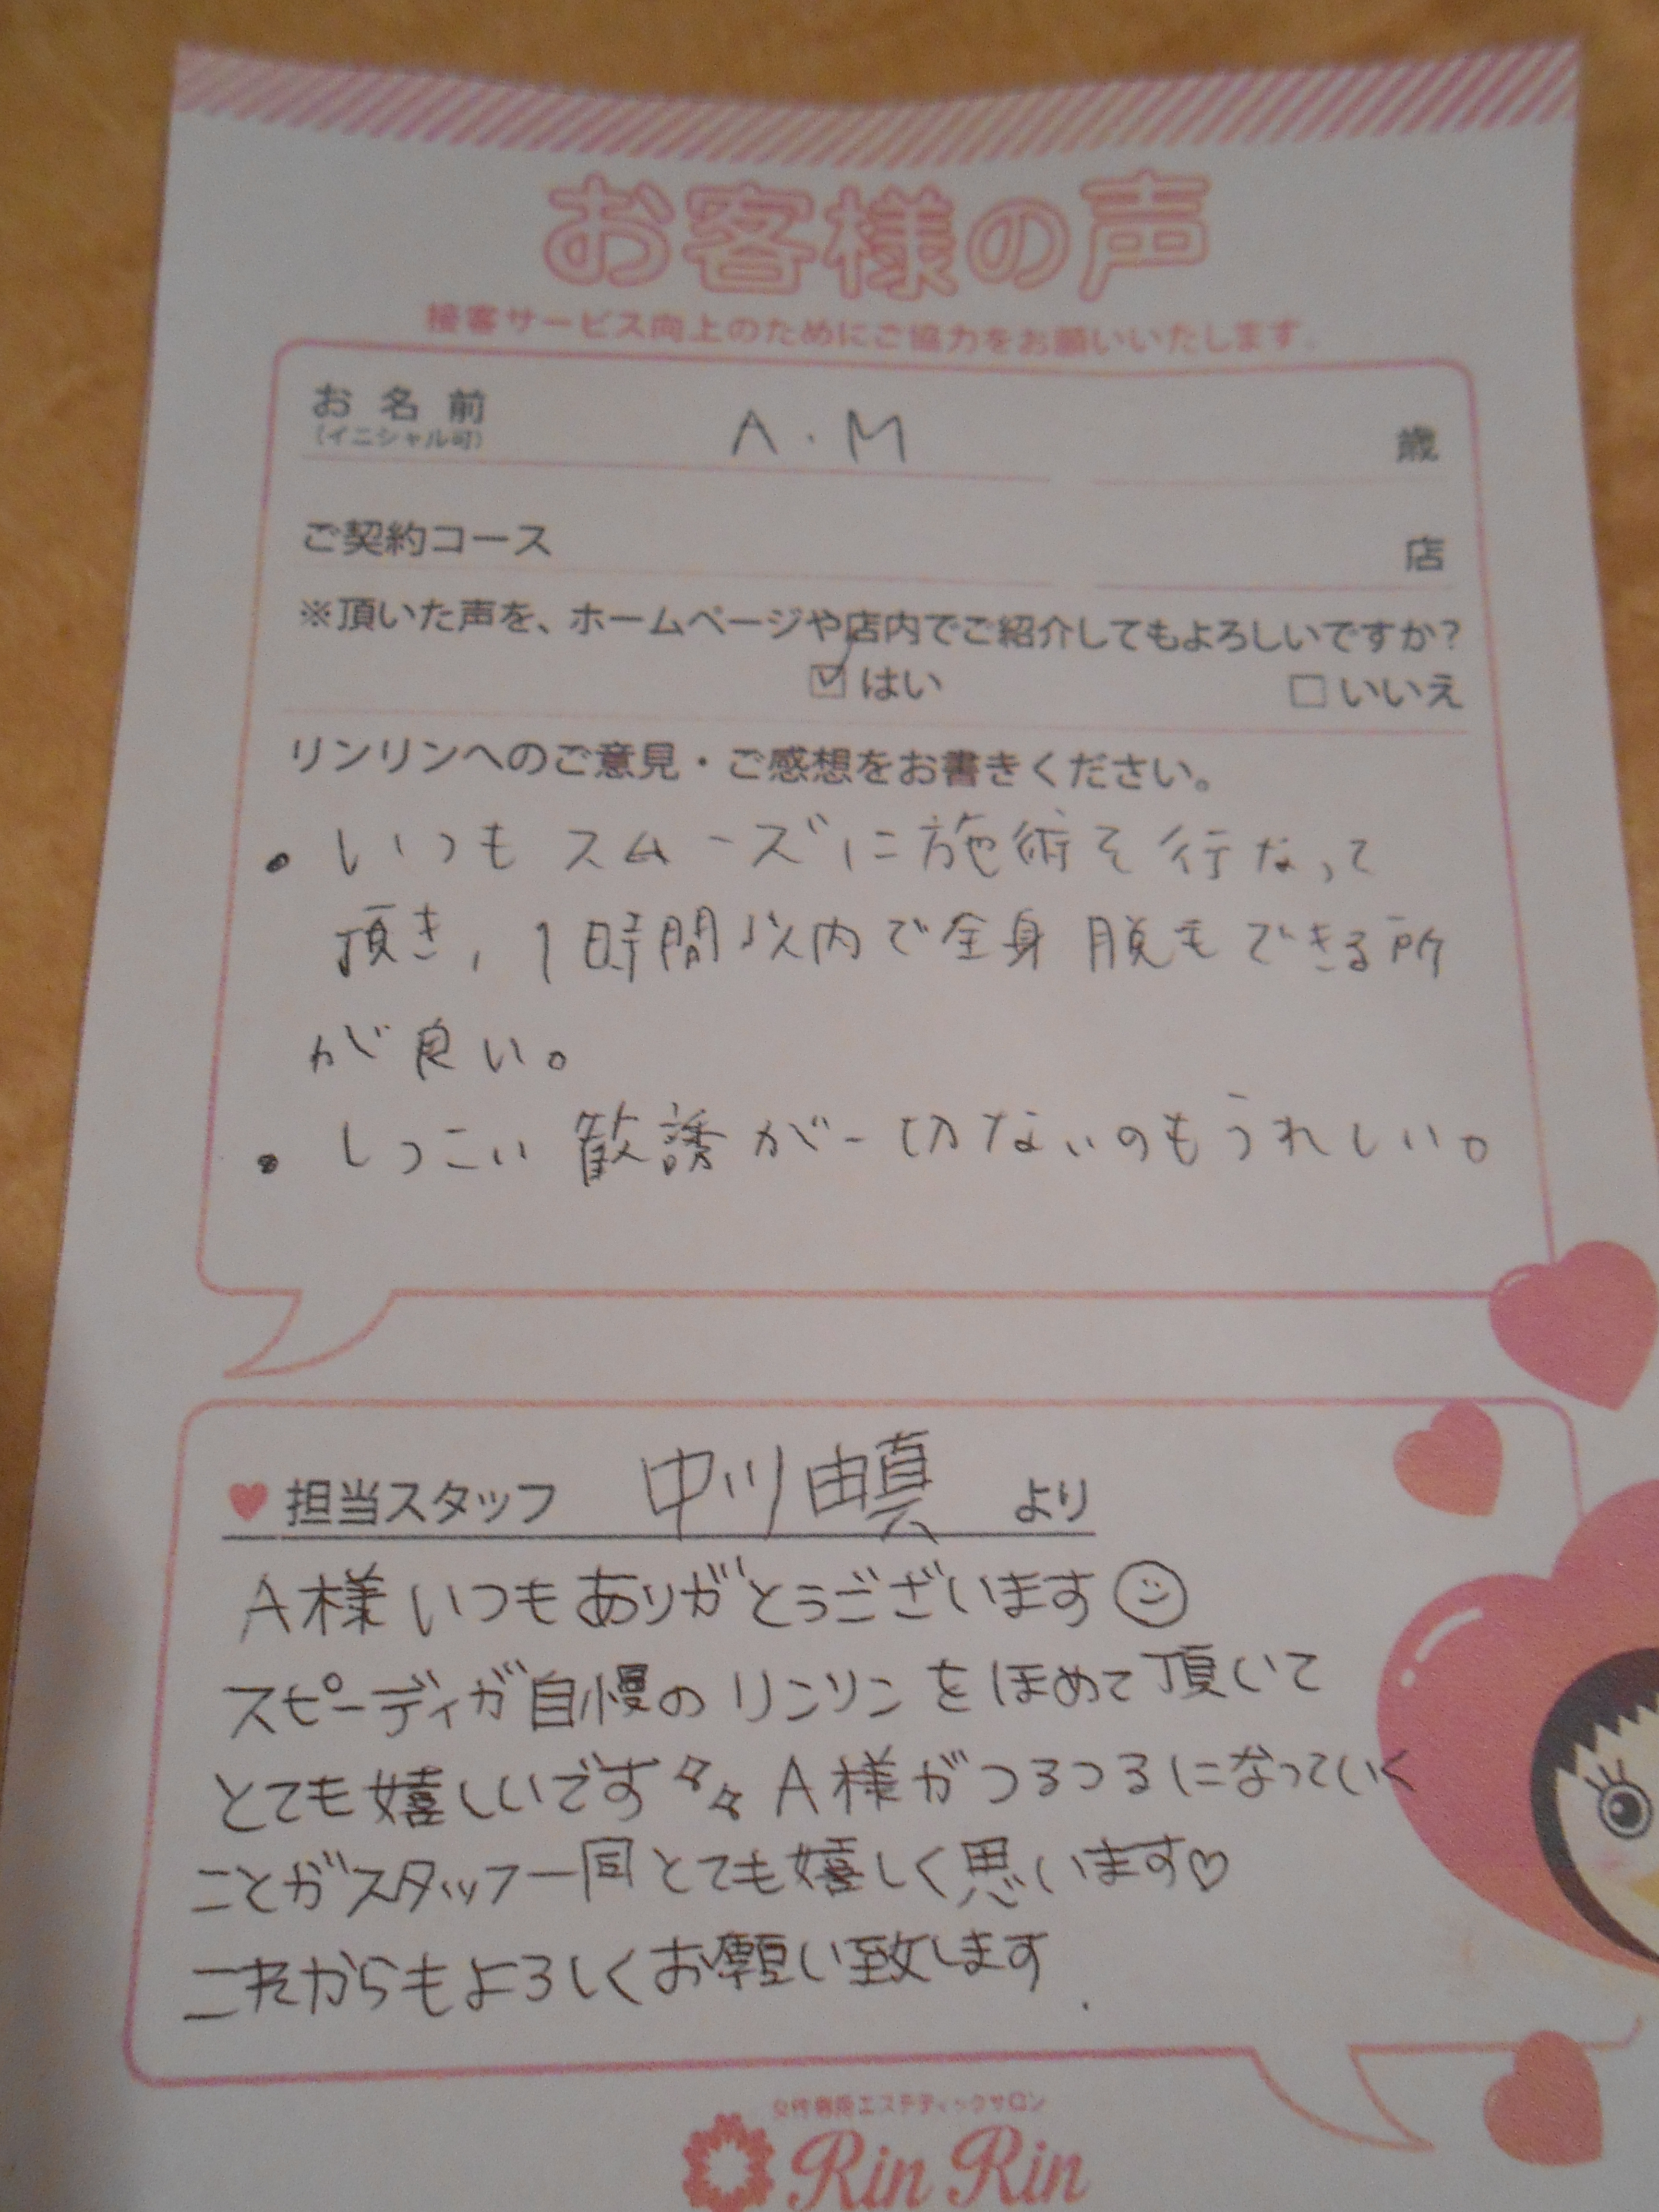 お客様の声
接客サービス向上のためにご協力をお願いいたします。
お名前 A・M 歳
(イニシャル可)
ご契約コース 店
※頂いた声を、ホームページや店内でご紹介してもよろしいですか?
☑はい □いいえ
リンリンへのご意見・ご感想をお書きください。
・いつもスムーズに施術を行なって
頂き、1時間以内で全身脱毛できる所
が良い。
・しつこい歓誘が一切ないのもうれしい。
♥担当スタッフ 中川由真 より
A様いつもありがとうございます☺
スピーディが自慢のリンリンをほめて頂いて
とても嬉しいです A様がつるつるになっていく
ことがスタッフ一同とても嬉しく思います♡
これからもよろしくお願い致します
女性専用エステティックサロン
Rin Rin